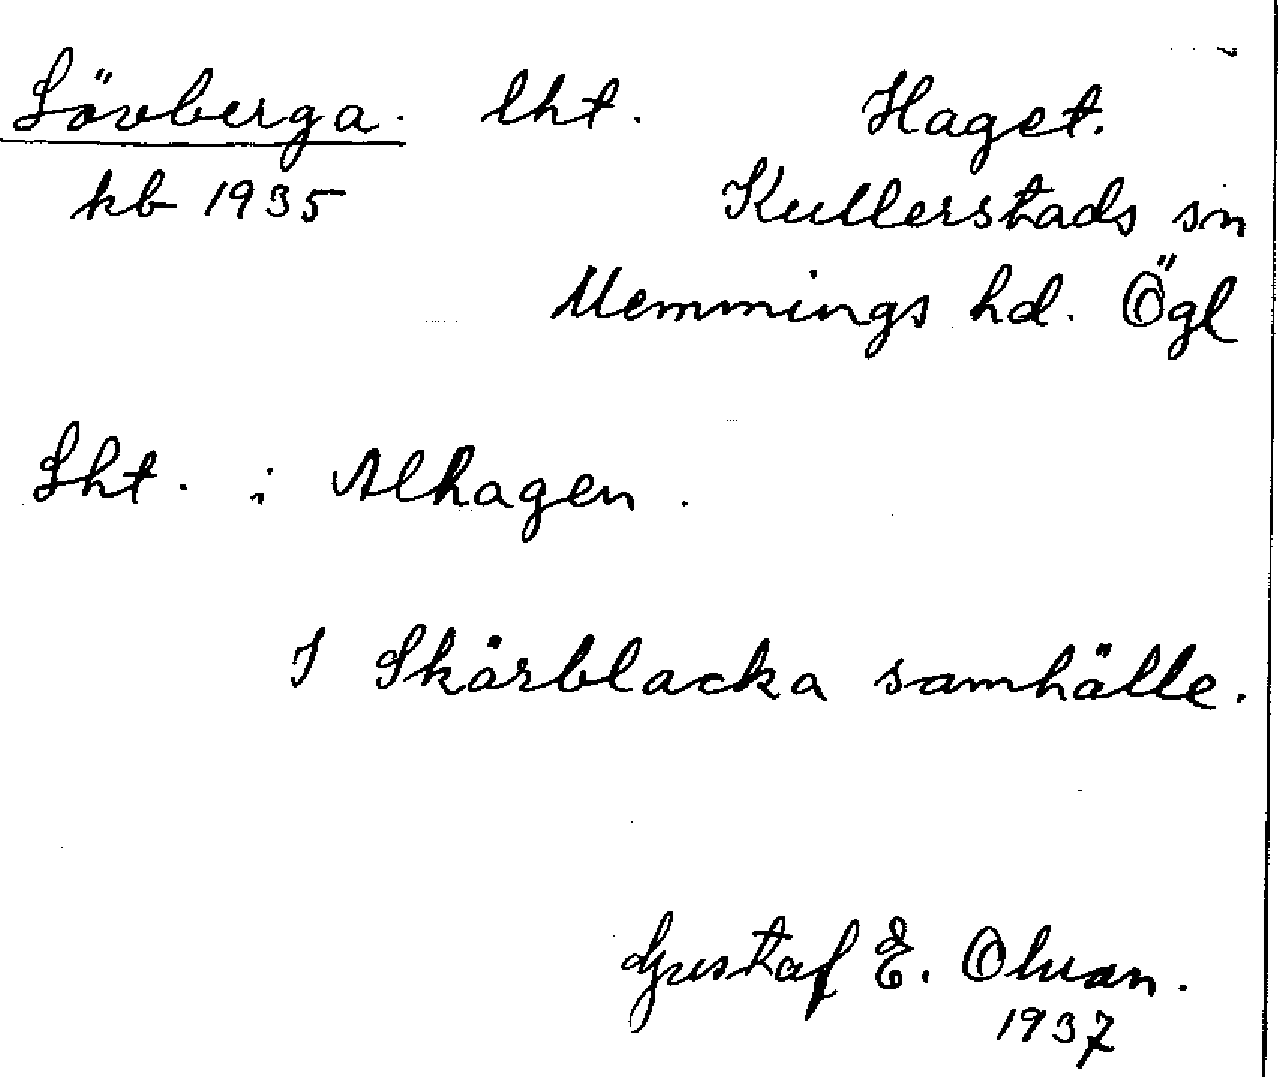 Lövberga. lht. Haget.
kb 1935 Kullerstads sn
Memmings hd. Ögl
Lht. i Alhagen.
I Skärblacka samhälle.
Gustaf E. Olsson.
1937